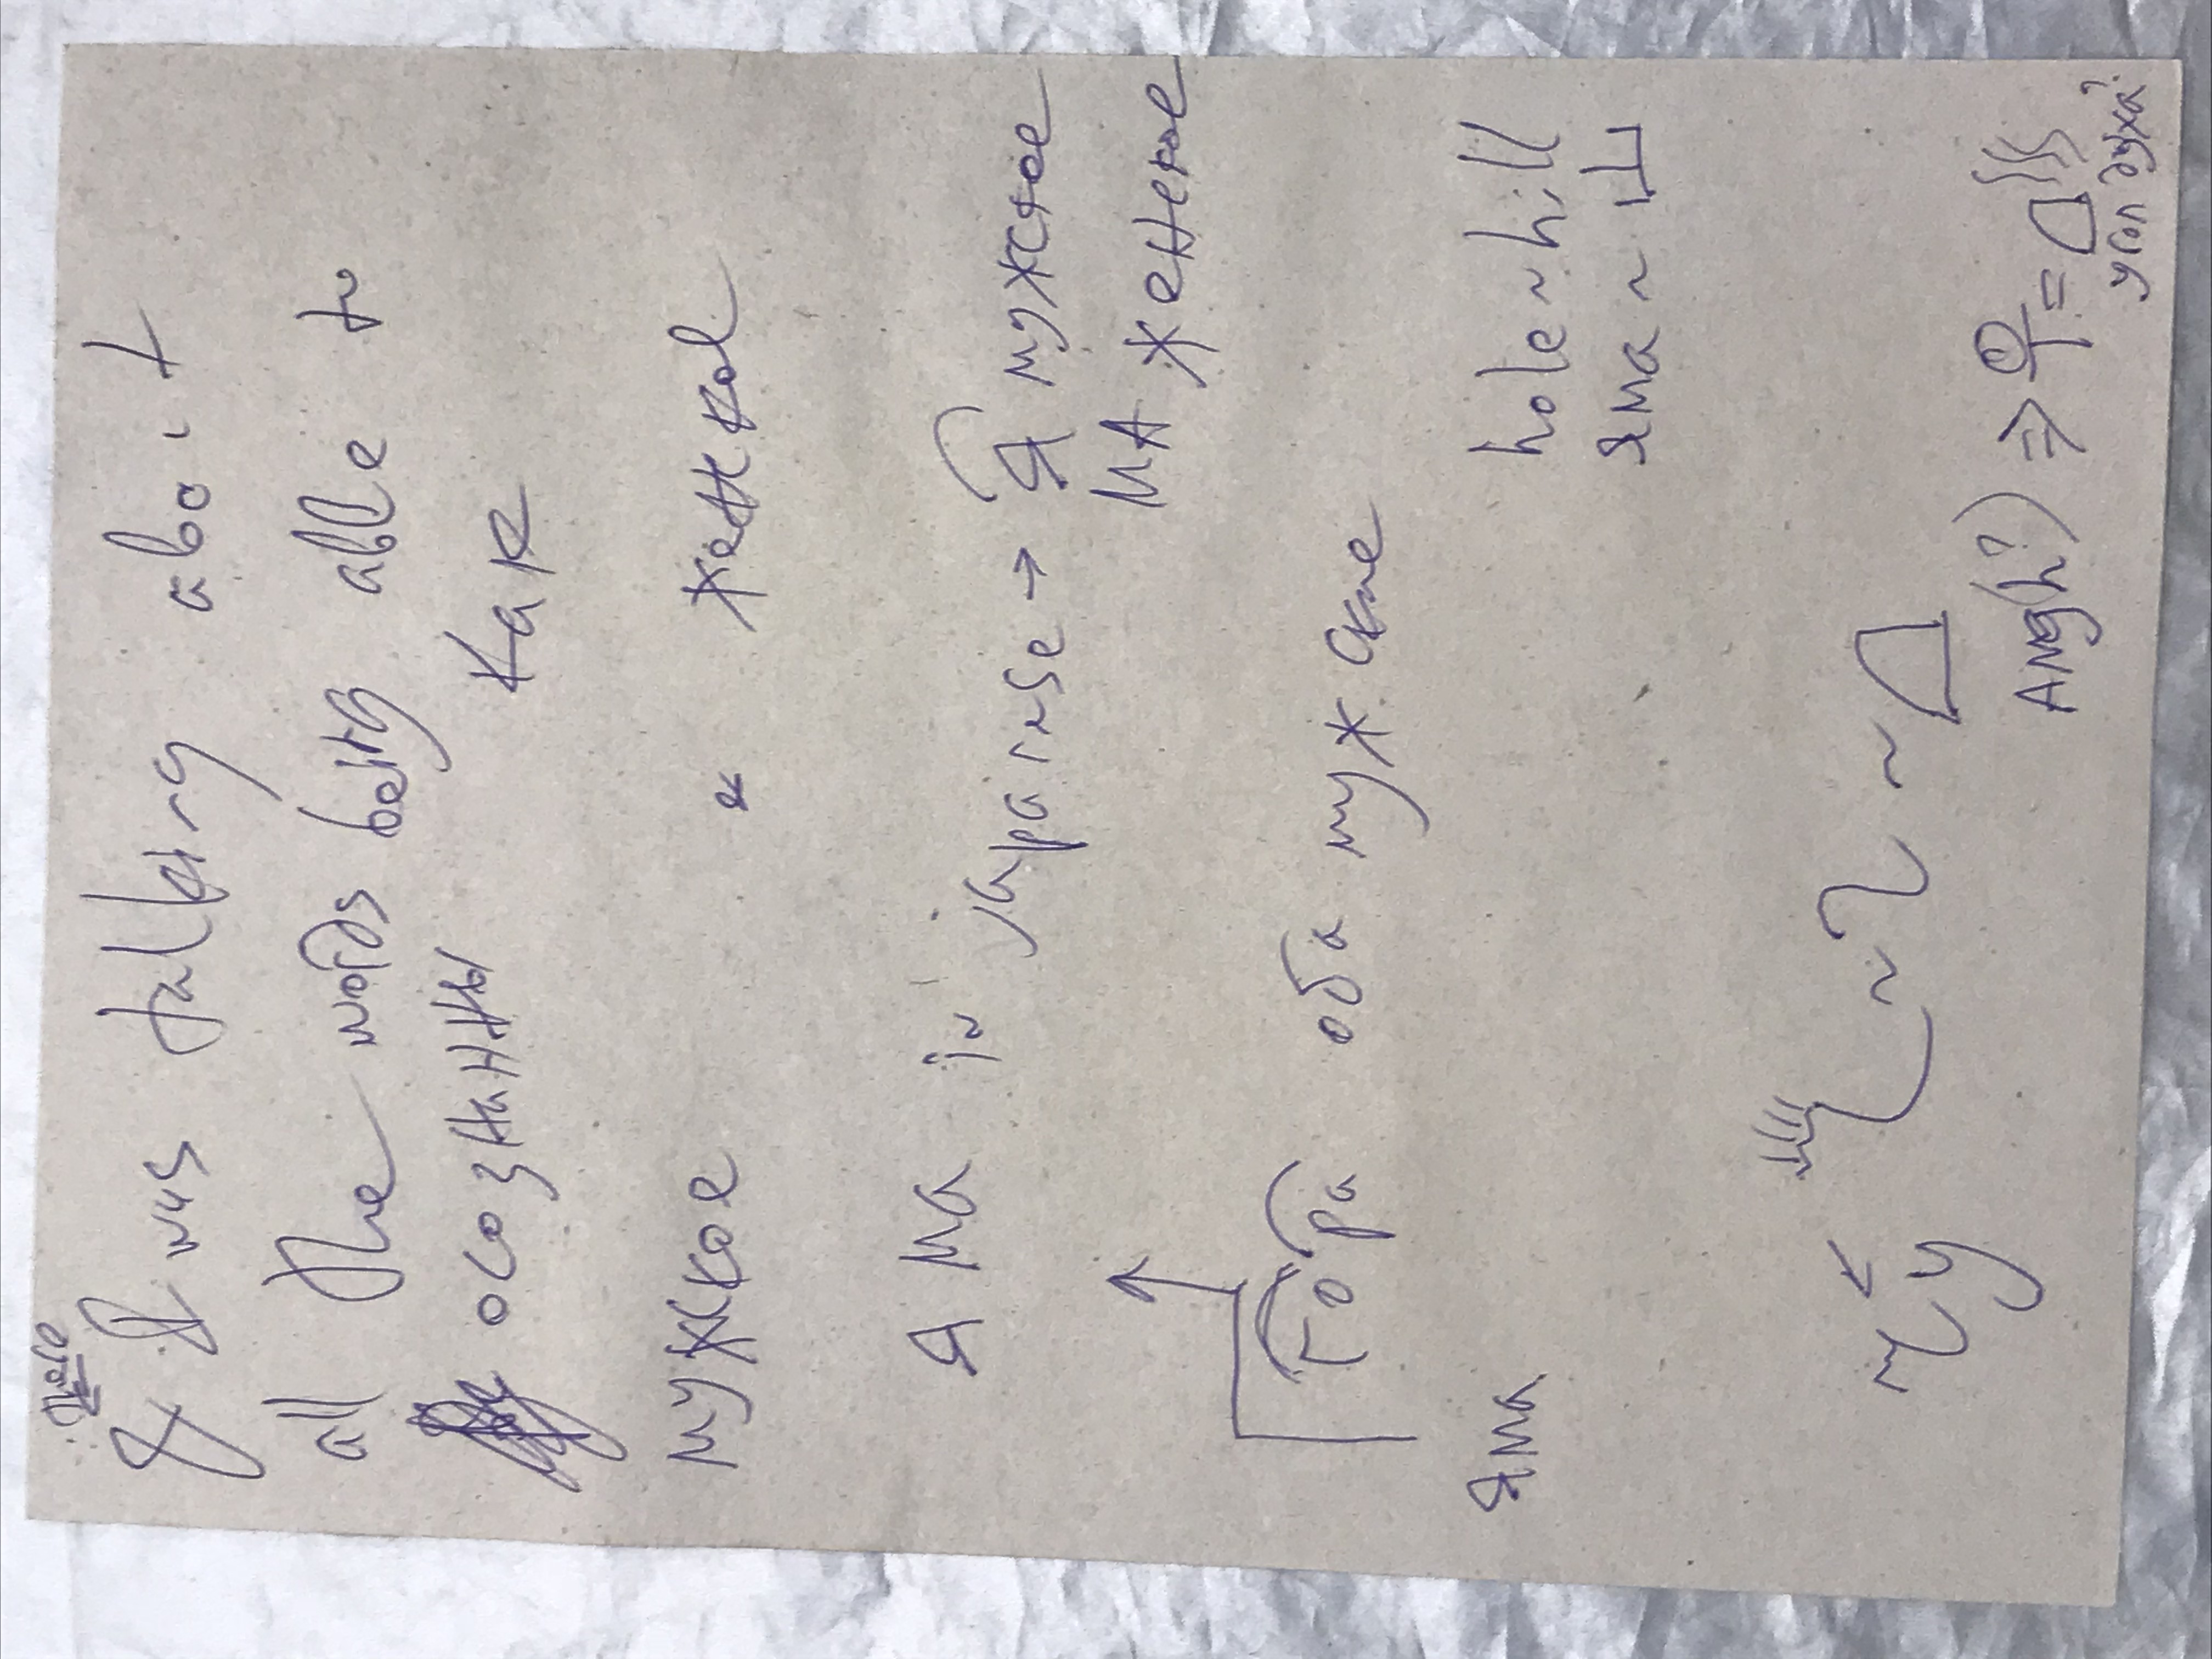 there
& I was talking about
all the words being able to
осознанны как
мужское и женское
Я МА in japanese → Я мужское
МА женское
гора оба мужские
яма
hole ~ hill
яма ~ 山
~ ~
Angh(?) ⇒ ♀ =
угол духа?